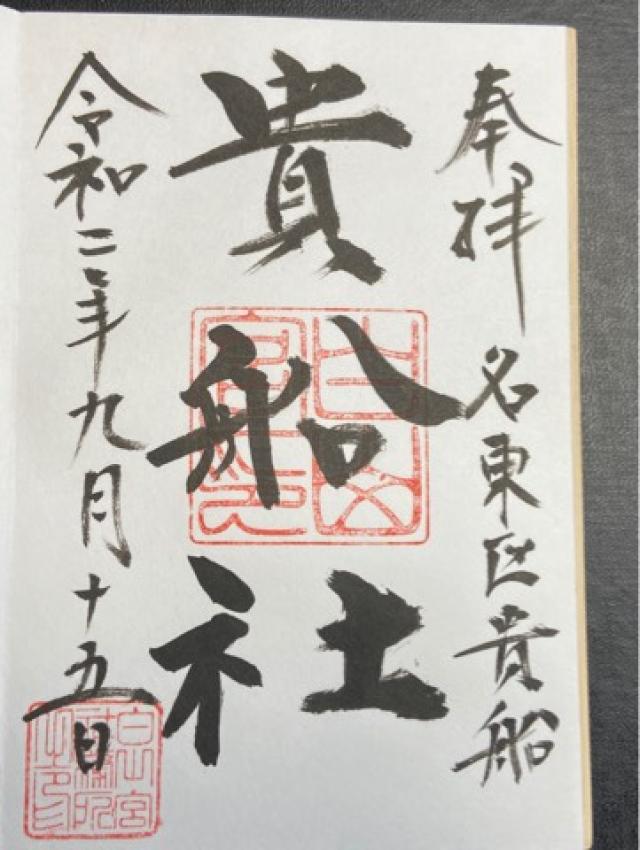 奉拝
名東区貴船
貴船社
令和二年九月十五日